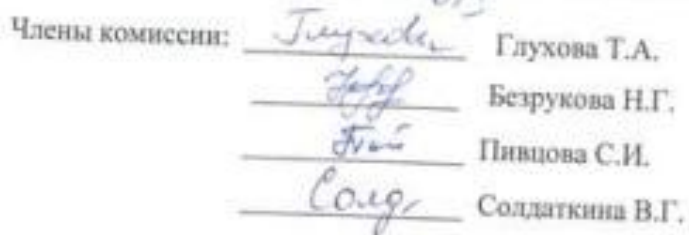 Члены комиссии: Глухова Т.А.
Безрукова Н.Г.
Пивцова С.И.
Солд. Солдаткина В.Г.